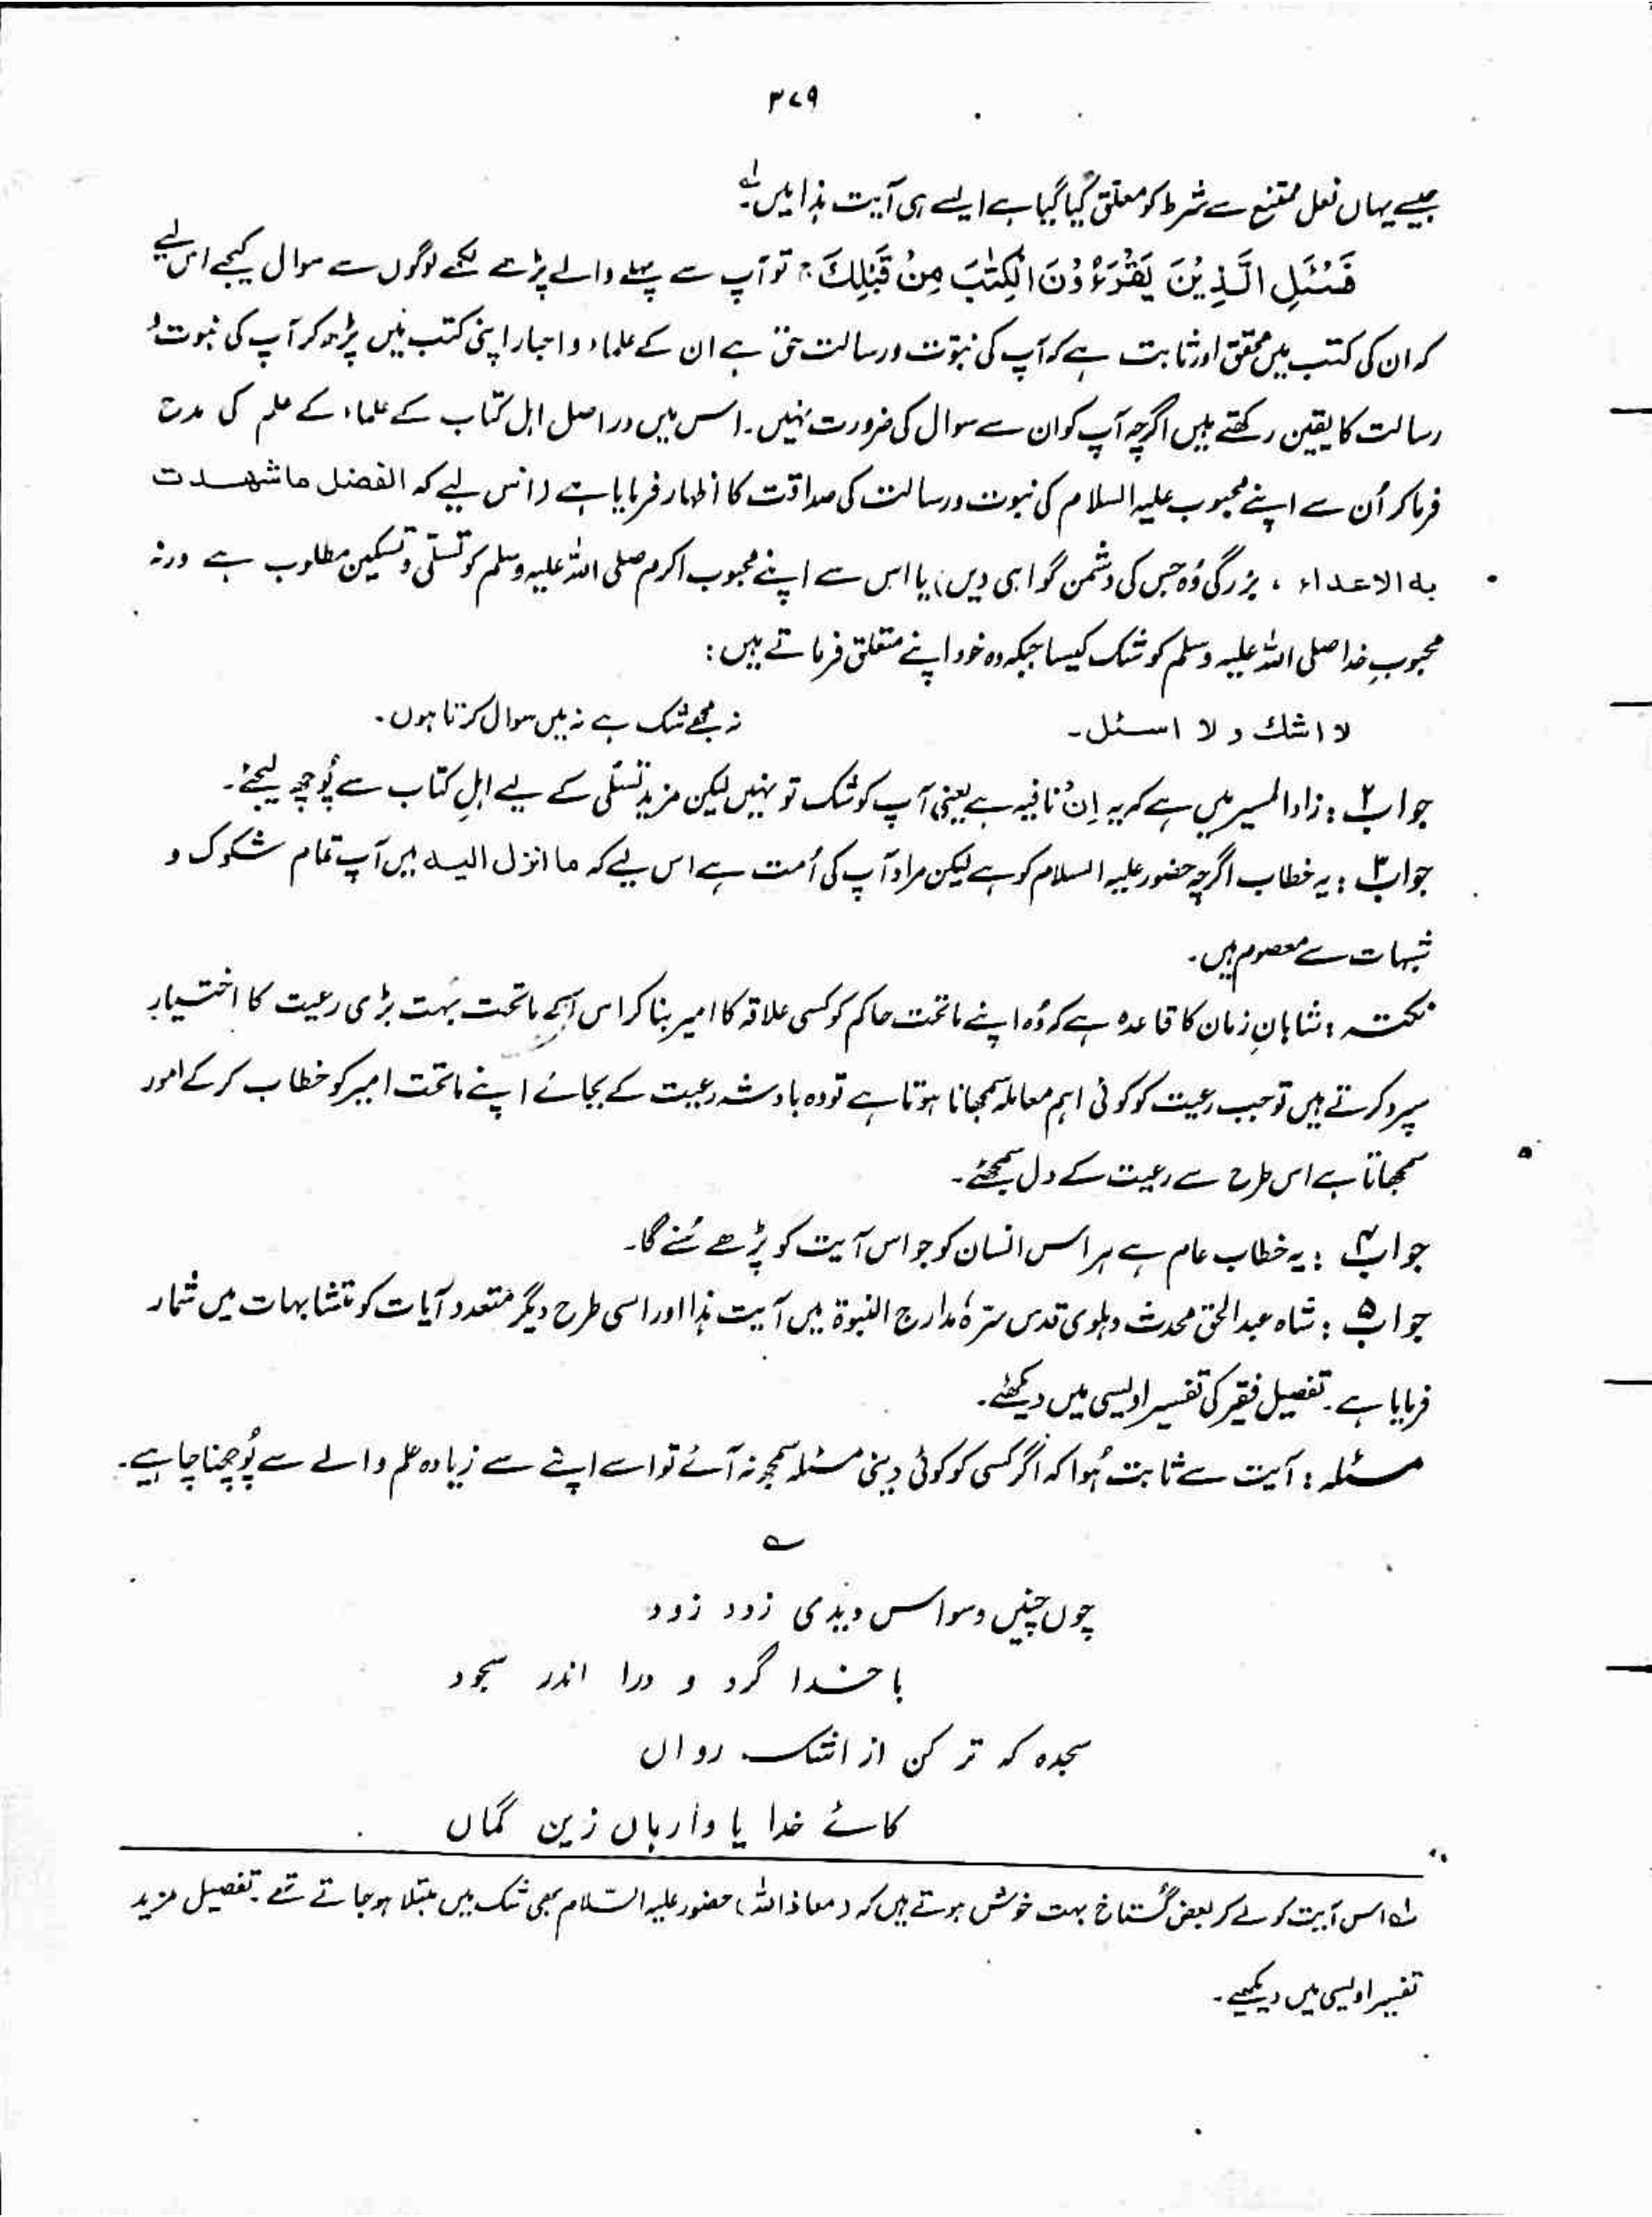 ۳۷۹
جیسے یہاں فعل ممتنع سے شرط کو معلق کیا گیا ہے ایسے ہی آیت ہذا میں لہ۔
فَسْئَلِ الَّذِیْنَ یَقْرَءُوْنَ الْکِتٰبَ مِنْ قَبْلِكَ ؕ تو آپ سے پہلے والے پڑھے لکھے لوگوں سے سوال کیجے اس لیے
کہ ان کی کتب میں محقق اور ثابت ہے کہ آپ کی نبوّت و رسالت حق ہے ان کے علماء و احبار اپنی کتب میں پڑھ کر آپ کی نبوت و
رسالت کا یقین رکھتے ہیں اگرچہ آپ کو ان سے سوال کی ضرورت نہیں۔ اس میں دراصل اہل کتاب کے علماء کے علم کی مدح
فرما کر اُن سے اپنے محبوب علیہ السلام کی نبوت و رسالت کی صداقت کا اظہار فرمایا ہے (اس لیے کہ الفضل ما شھدت
بہ الاعداء ، بزرگی وُہ جس کی دشمن گواہی دیں) یا اس سے اپنے محبوب اکرم صلی اللہ علیہ وسلم کو تسلّی و تسکین مطلوب ہے ورنہ
محبوبِ خدا صلی اللہ علیہ وسلم کو شک کیسا جبکہ وہ خود اپنے متعلق فرماتے ہیں :
لا اشك و لا اسئل۔ نہ مجھے شک ہے نہ میں سوال کرتا ہوں۔
جواب ۲ : زاد المسیر میں ہے کہ یہ اِنْ نافیہ ہے یعنی آپ کو شک تو نہیں لیکن مزید تسلّی کے لیے اہلِ کتاب سے پُوچھ لیجئے۔
جواب ۳ : یہ خطاب اگرچہ حضور علیہ السلام کو ہے لیکن مراد آپ کی اُمت ہے اس لیے کہ ما انزل الیہ میں آپ تمام شکوک و
شبہات سے معصوم ہیں۔
نکتہ : شاہانِ زمان کا قاعدہ ہے کہ وُہ اپنے ماتحت حاکم کو کسی علاقہ کا امیر بنا کر اس کے ماتحت بہُت بڑی رعیت کا اختیار
سپرد کرتے ہیں تو جب رعیت کو کوئی اہم معاملہ سمجھانا ہوتا ہے تو وہ بادشہ رعیت کے بجائے اپنے ماتحت امیر کو خطاب کر کے امور
سمجھاتا ہے اس طرح سے رعیت کے دل سمجھئے۔
جواب ۴ : یہ خطاب عام ہے ہر اس انسان کو جو اس آیت کو پڑھے سُنے گا۔
جواب ۵ : شاہ عبدالحق محدث دہلوی قدس سرّہٗ مدارج النبوۃ میں آیت ہٰذا اور اسی طرح دیگر متعدد آیات کو متشابہات میں شمار
فرمایا ہے۔ تفصیل فقیر کی تفسیر اویسی میں دیکھئے۔
مسئلہ : آیت سے ثابت ہُوا کہ اگر کسی کو کوئی دینی مسئلہ سمجھ نہ آئے تو اسے اپنے سے زیادہ علم والے سے پُوچھنا چاہیے۔
؎
چوں چنیں وسواس دیدی زود زود
با خدا گرد و درا اندر سجود
سجدہ کہ تر کن از اشک رواں
کائے خدا یا وا رہاں زین گماں
لہ اس آیت کو لے کر بعض گستاخ بہت خوش ہوتے ہیں کہ (معاذ اللہ) حضور علیہ السّلام بھی شک میں مبتلا ہو جاتے تھے۔ تفصیل مزید
تفسیر اویسی میں دیکھیے۔